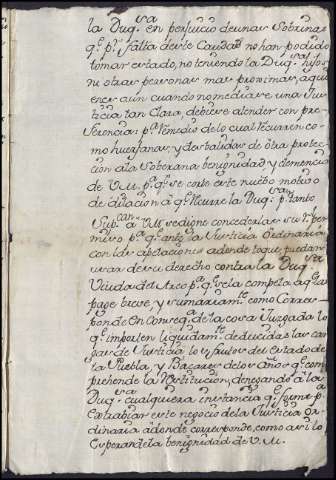 la Duq.sa en perjuicio de unas Sobrinas
q.e p.r falta de este Caudal no han podido
tomar estado, no teniendo la Duq.sa hijos
ni otras personas mas proximas, a quie
ener aun cuando no mediase una Jus
ticia tan clara debiese atender con pre
ferencia: p.r remedio de lo cual recurren co
mo huerfanas, y desvalidas de otra protec
cion a la Soberana benignidad y clemencia
de V.M. p.a q.e se corte este nuevo motivo
de dilacion a q.e recurre la Duq.sa p.r tanto
Sup.can a V.M. se digne concederlas su R.l per
miso p.a q.e ante la Justicia Ordinaria
con las apelaciones adonde toque puedan
usar de su derecho contra la Duq.sa
Viuda del Arco p.a q.e se la compela a q.e las
page breve, y sumariam.te como Corres
ponde en Conseq.a de la cosa Juzgada lo
q.e importen liquidam.te deducidas las car
gas de Justicia los frutos del estado de
la Puebla, y Bacares de los años q.e com
prehende la Restitucion, denegando a la
Duq.sa cualquiera instancia q.e forme p.a
extrabiar este negocio de la Justicia or
dinaria adonde corresponde, como asi lo
esperan de la benignidad de V.M.